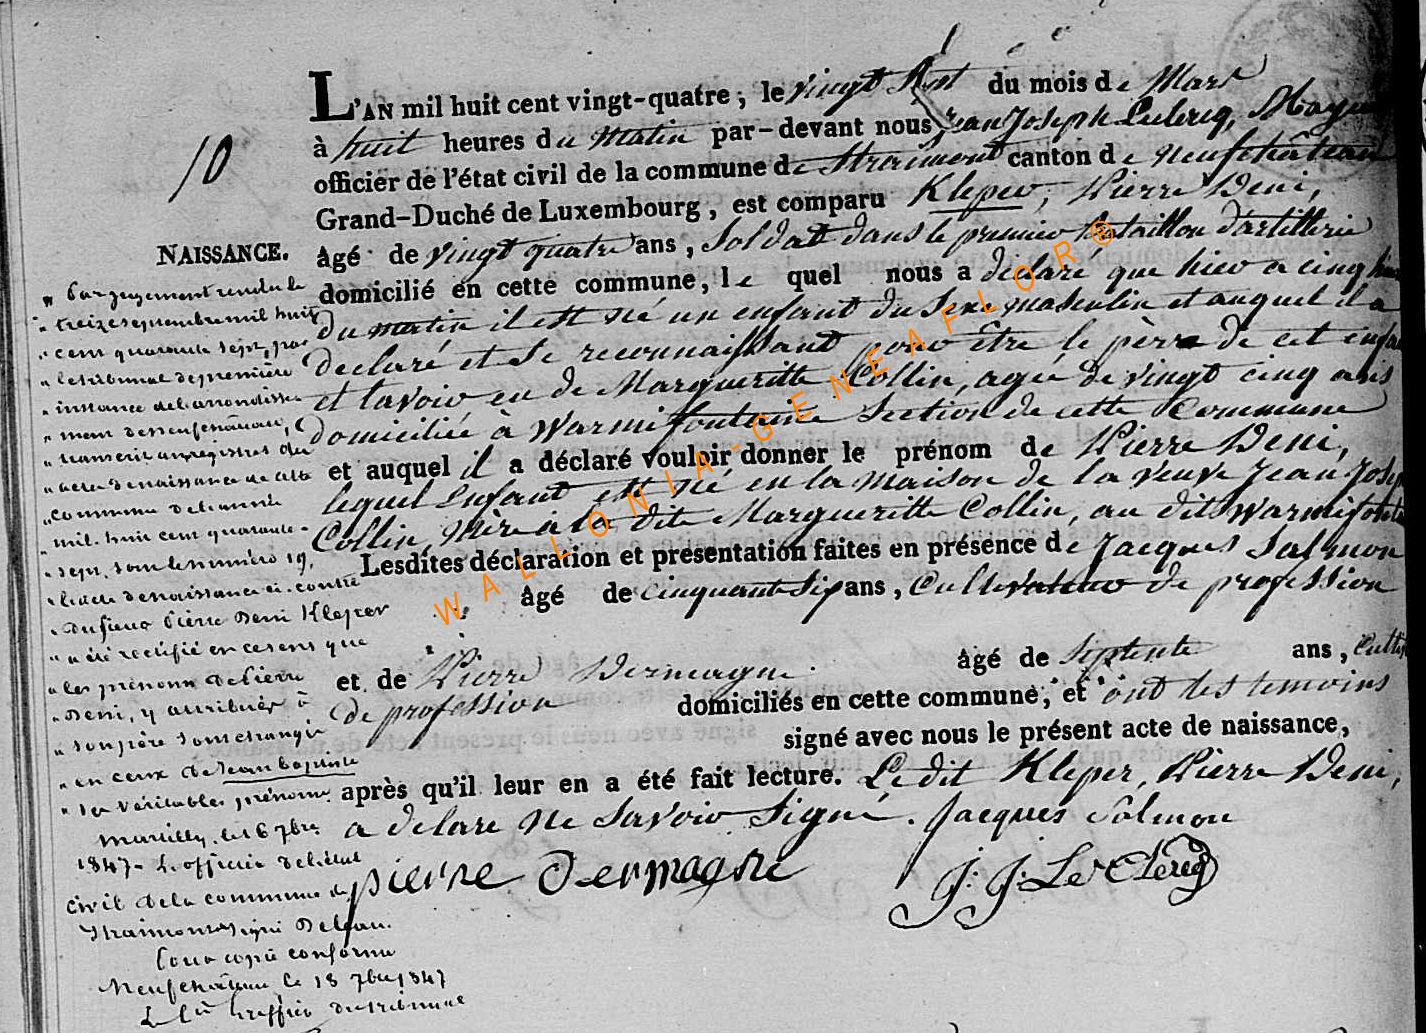 L'AN mil huit cent vingt-quatre ; le vingt Sept du mois de Mars
à huit heures du matin par-devant nous, jean Joseph Leclercq, Mayeur
officier de l'état civil de la commune de Straimont canton de neufchâteau
Grand-Duché de Luxembourg, est comparu Kleper, Pierre Deni,
âgé de vingt quatre ans, Soldat dans le premier bataillon d'artillerie
domicilié en cette commune, le quel nous a déclaré que hier a cinq heures
du matin il est né un enfant du Sexe masculin et auquel il a
declaré et Se reconnaissant pour Etre le père de cet enfant
et l'avoir eu de Margueritte Collin, agée de vingt cinq ans
domiciliée à Warmifontaine Section de cette Commune
et auquel il a déclaré vouloir donner le prénom de Pierre Deni,
lequel Enfant est né en la maison de la veuve Jean Joseph
Collin, Mère à la dite Margueritte Collin, au dit Warmifontaine
Lesdites déclaration et présentation faites en présence de Jacques Salmon
âgé de cinquante Six ans, Cultivateur de profession
et de Pierre Dermagne âgé de Septente ans, Cultiv
de profession domiciliés en cette commune, et ont les temoins
signé avec nous le présent acte de naissance,
après qu'il leur en a été fait lecture. Ledit Kleper, Pierre Deni,
a déclaré ne Savoir Signé. Jacques Salmon
pierre Dermagne J: J: Le Clercq
10
NAISSANCE.
" Par jugement rendu le
" treize septembre mil huit
" cent quarante sept, par
" le tribunal de première
" instance de l'arrondisse
" ment de Neufchâteau,
" transcrit au registres des
" actes de naissance de cette
" commune de l'année
" mil huit cent quarante-
" sept, sous le numéro 19,
" l'acte de naissance ci-contre
" du sieur Pierre Deni Kleper
" a été rectifié en ce sens que
" les prénoms de Pierre
" Deni, y attribués à
" son père sont changés
" en ceux de Jean baptiste
" ses véritables prénoms.
Martilly, le 16 7bre
1847. L'officier de l'état
civil de la commune de
Straimont, signé
Pour copie conforme
Neufchâteau le 18 7bre 1847
Le Greffier du tribunal
WALLONIA-GENEAFLOR®